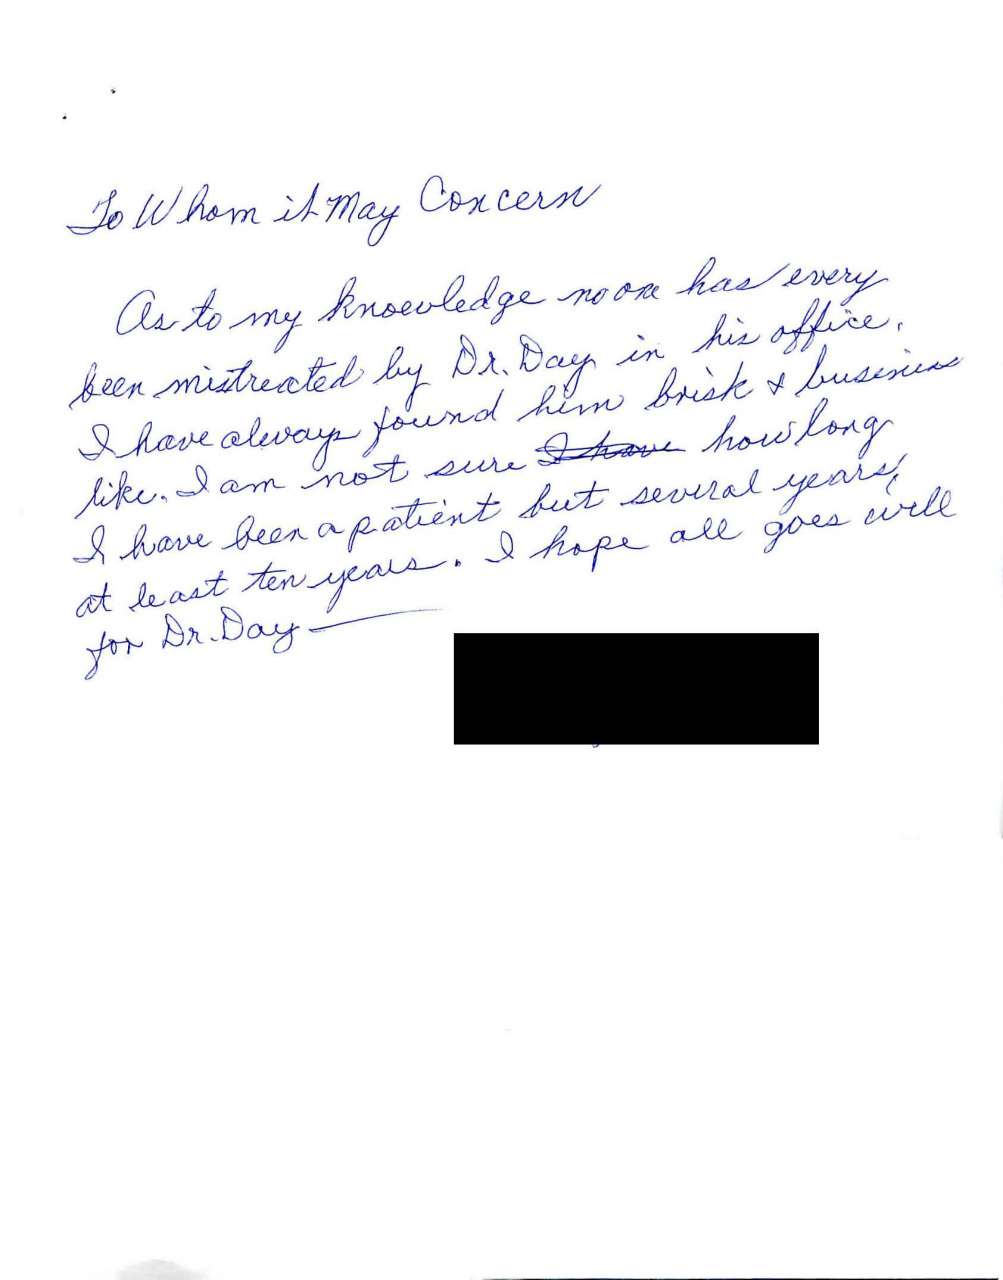 To Whom it May Concern
As to my knowledge no one has every
been mistreated by Dr. Day in his office.
I have always found him brisk & business
like. I am not sure I have how long
I have been a patient but several years,
at least ten years. I hope all goes well
for Dr. Day —